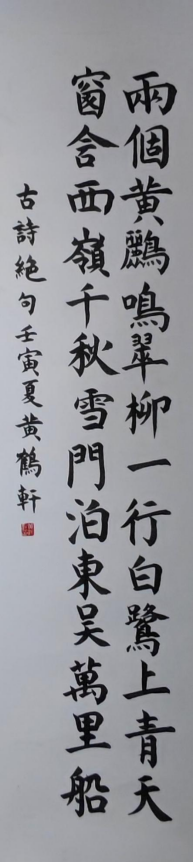 兩個黄鸝鳴翠柳一行白鷺上青天
窗含西嶺千秋雪門泊東吴萬里船
古詩絶句壬寅夏黄鶴軒